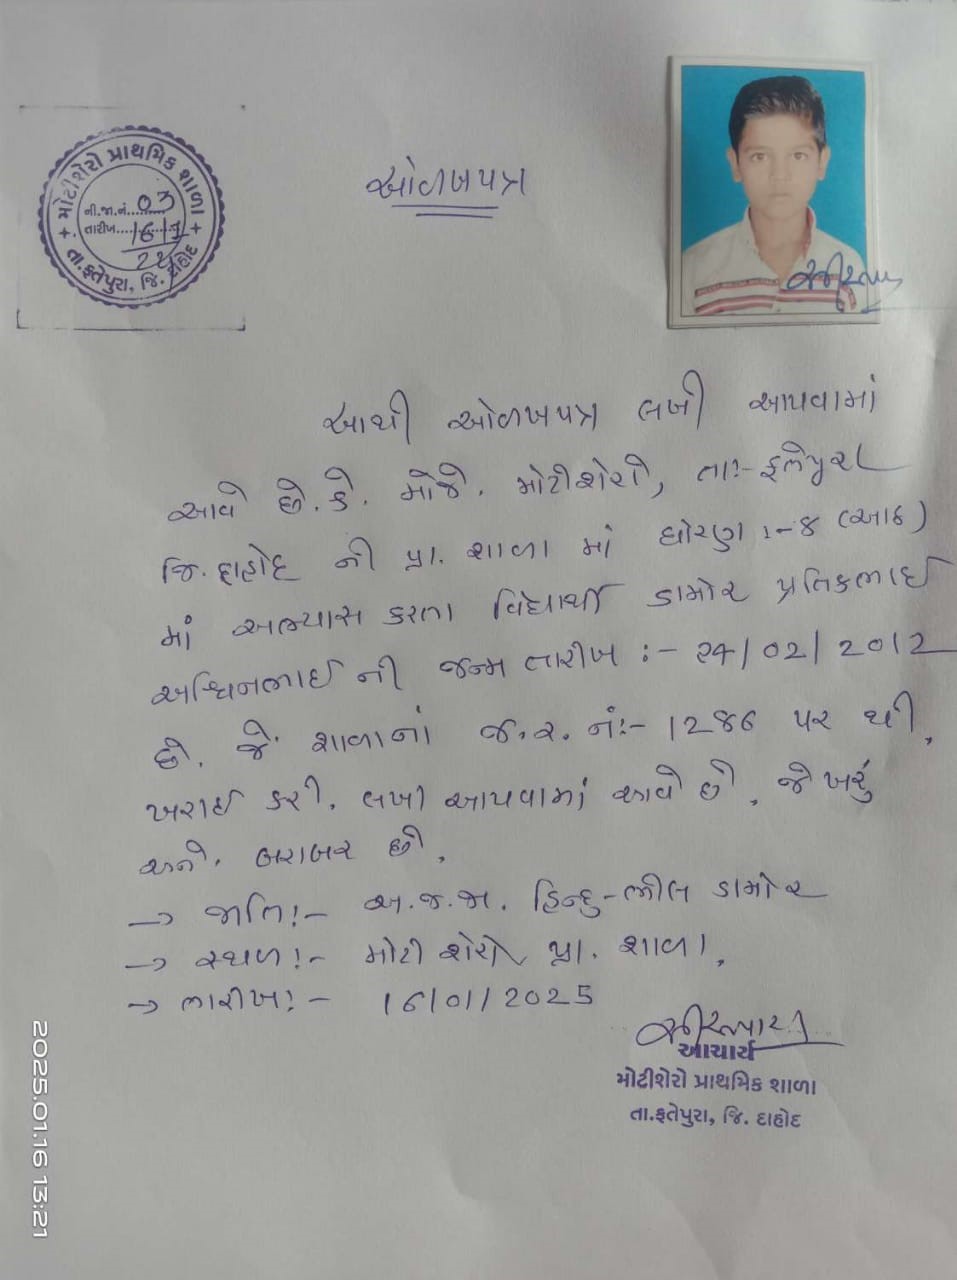 મોટીશેરો પ્રાથમિક શાળા
ની.જા.નં. 03
તારીખ 16/1
તા.ફતેપુરા, જિ. દાહોદ
ઓળખપત્ર
આથી ઓળખપત્ર લખી આપવામાં
આવે છે. કે. મોજે. મોટીશેરો, તાઃ- ફતેપુરા
જિ. દાહોદ ની પ્રા. શાળા માં ધોરણ :- ૮ (આઠ)
માં અભ્યાસ કરતા વિદ્યાર્થી ડામોર પ્રતિકભાઈ
અશ્વિનભાઈ ની જન્મ તારીખ :- 24/02/2012
છે. જે. શાળાનાં જ.ર. નંઃ- 1286 પર થી,
ખરાઈ કરી. લખી આપવામાં આવે છે. જે ખરું
અને. બરાબર છે.
→ જાતિ:- અ.જ.જા. હિન્દુ-ભીલ ડામોર
→ સ્થળ:- મોટી શેરો પ્રા. શાળા.
→ તારીખ:- 16/01/2025
આચાર્ય
મોટીશેરો પ્રાથમિક શાળા
તા.ફતેપુરા, જિ. દાહોદ
2025.01.16 13:21